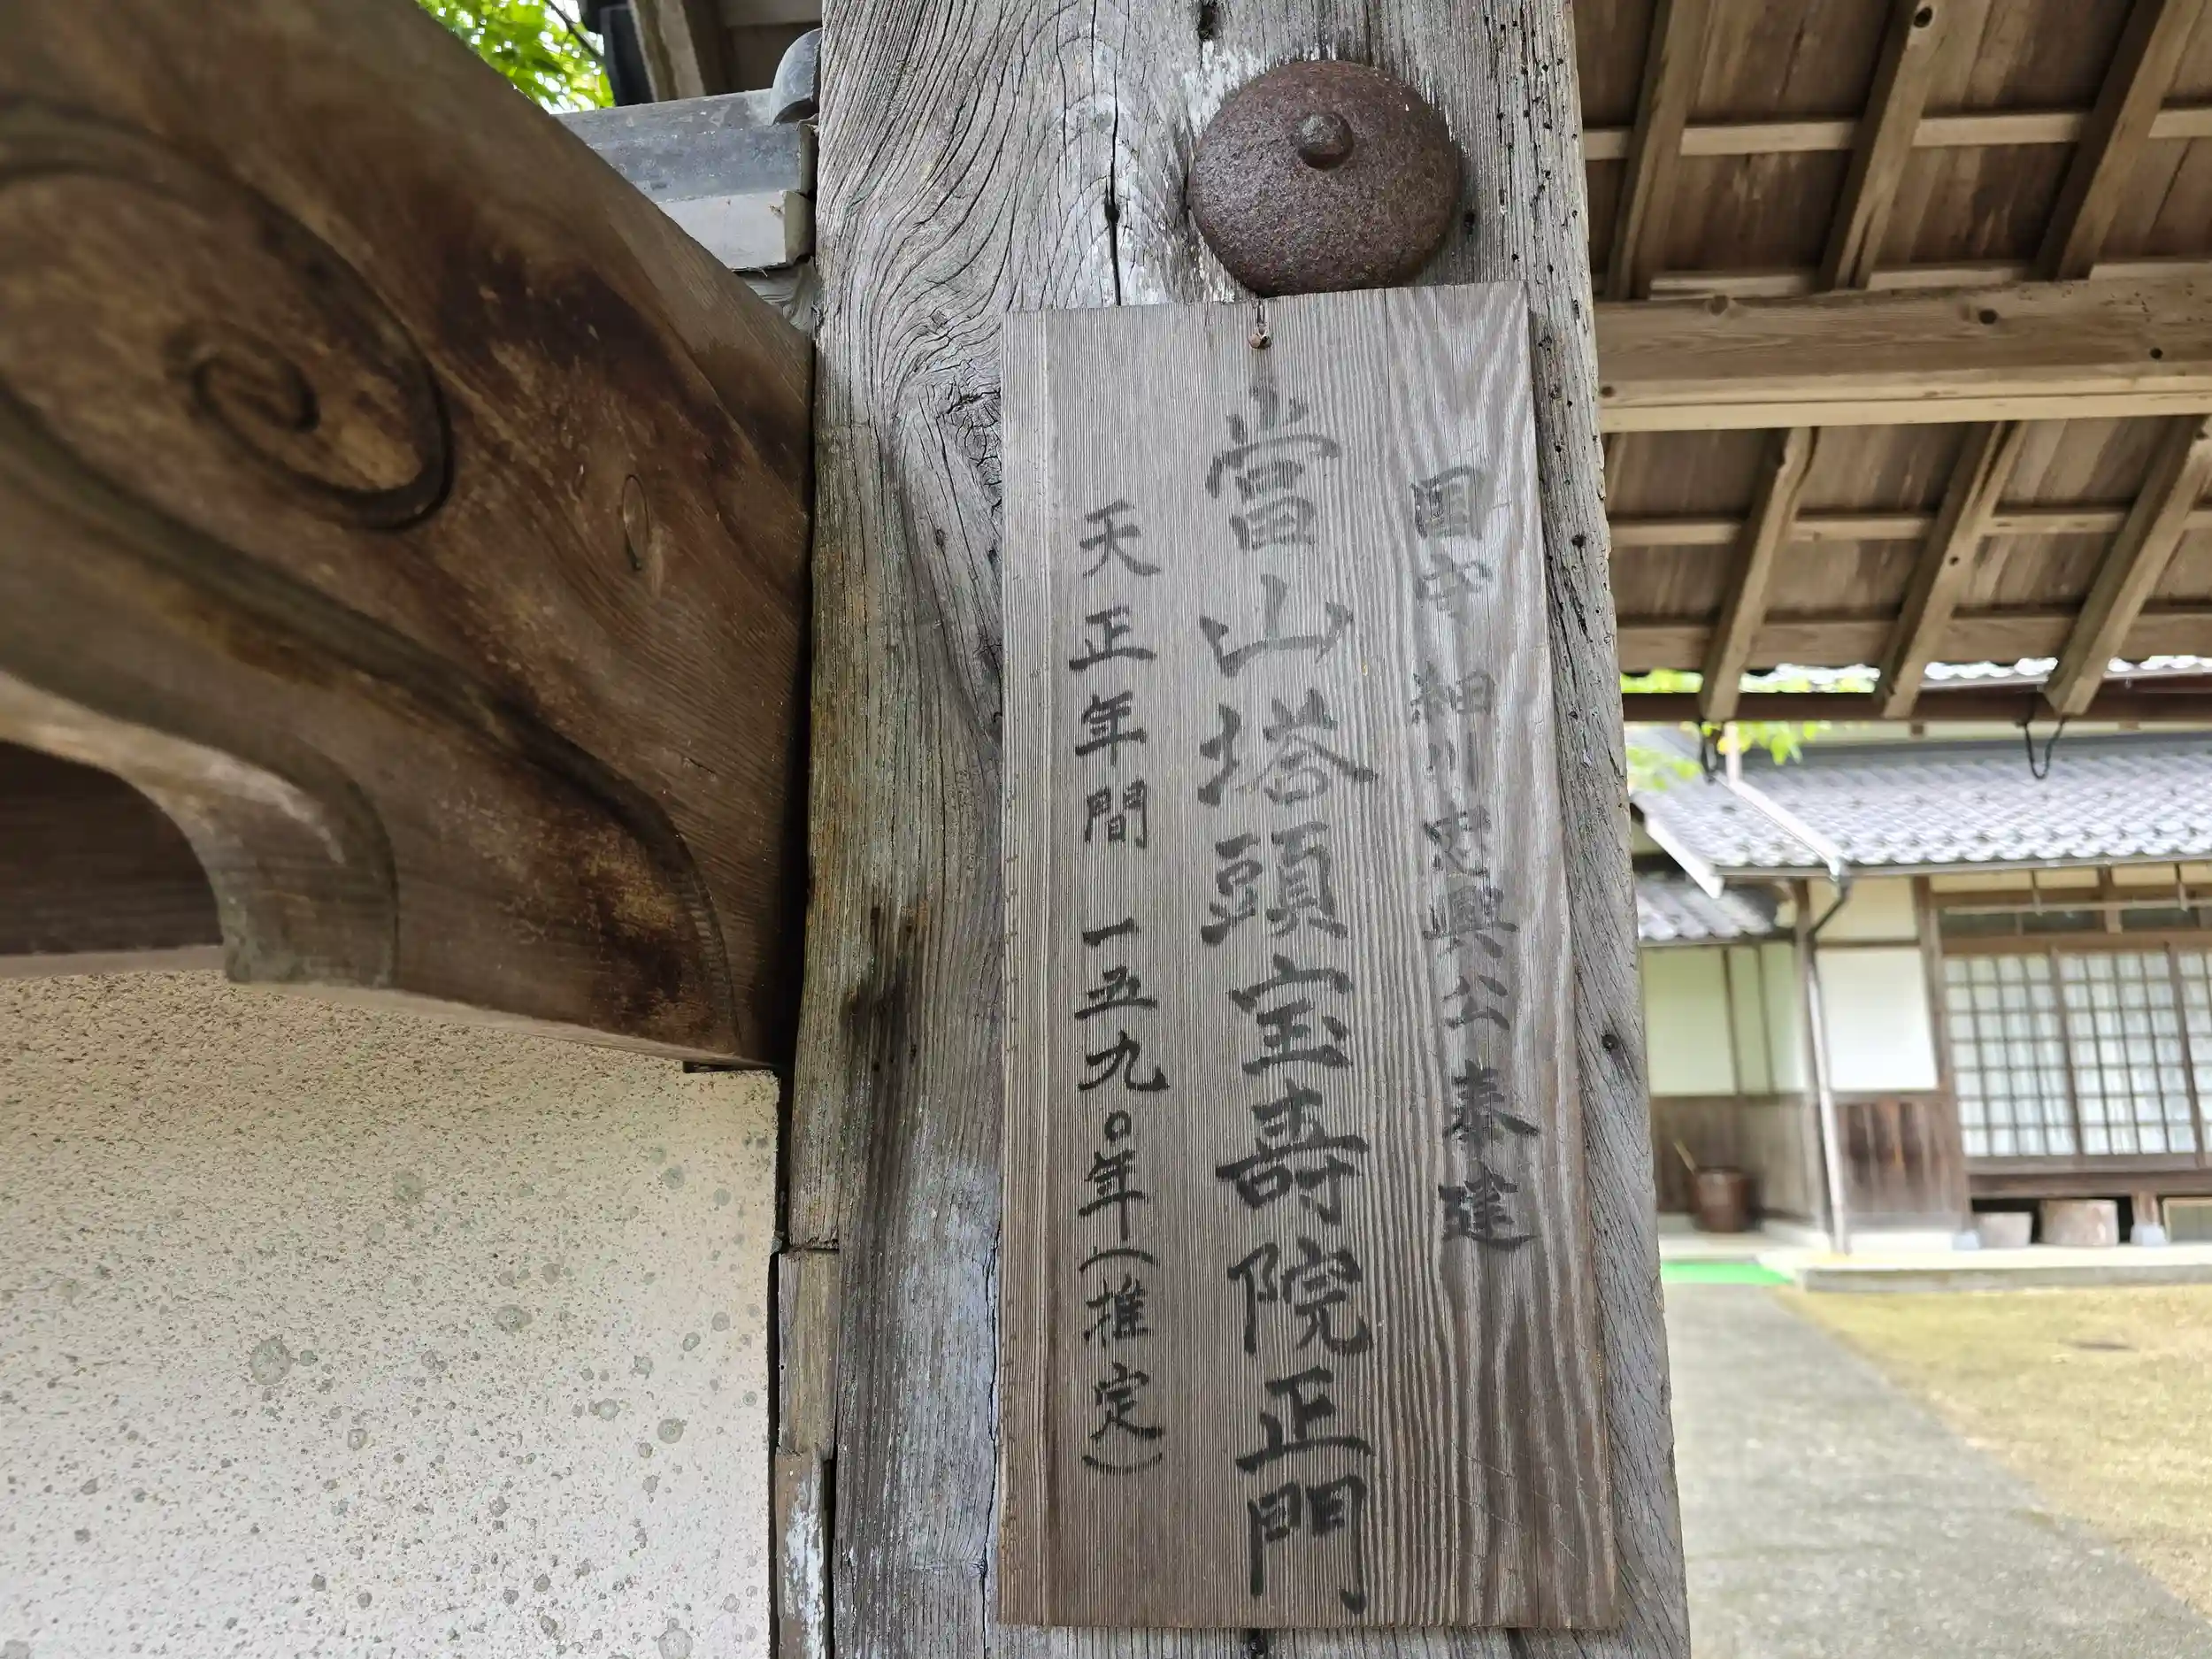 国守 細川忠興公奉建
當山塔頭宝寿院正門
天正年間 一五九〇年(推定)